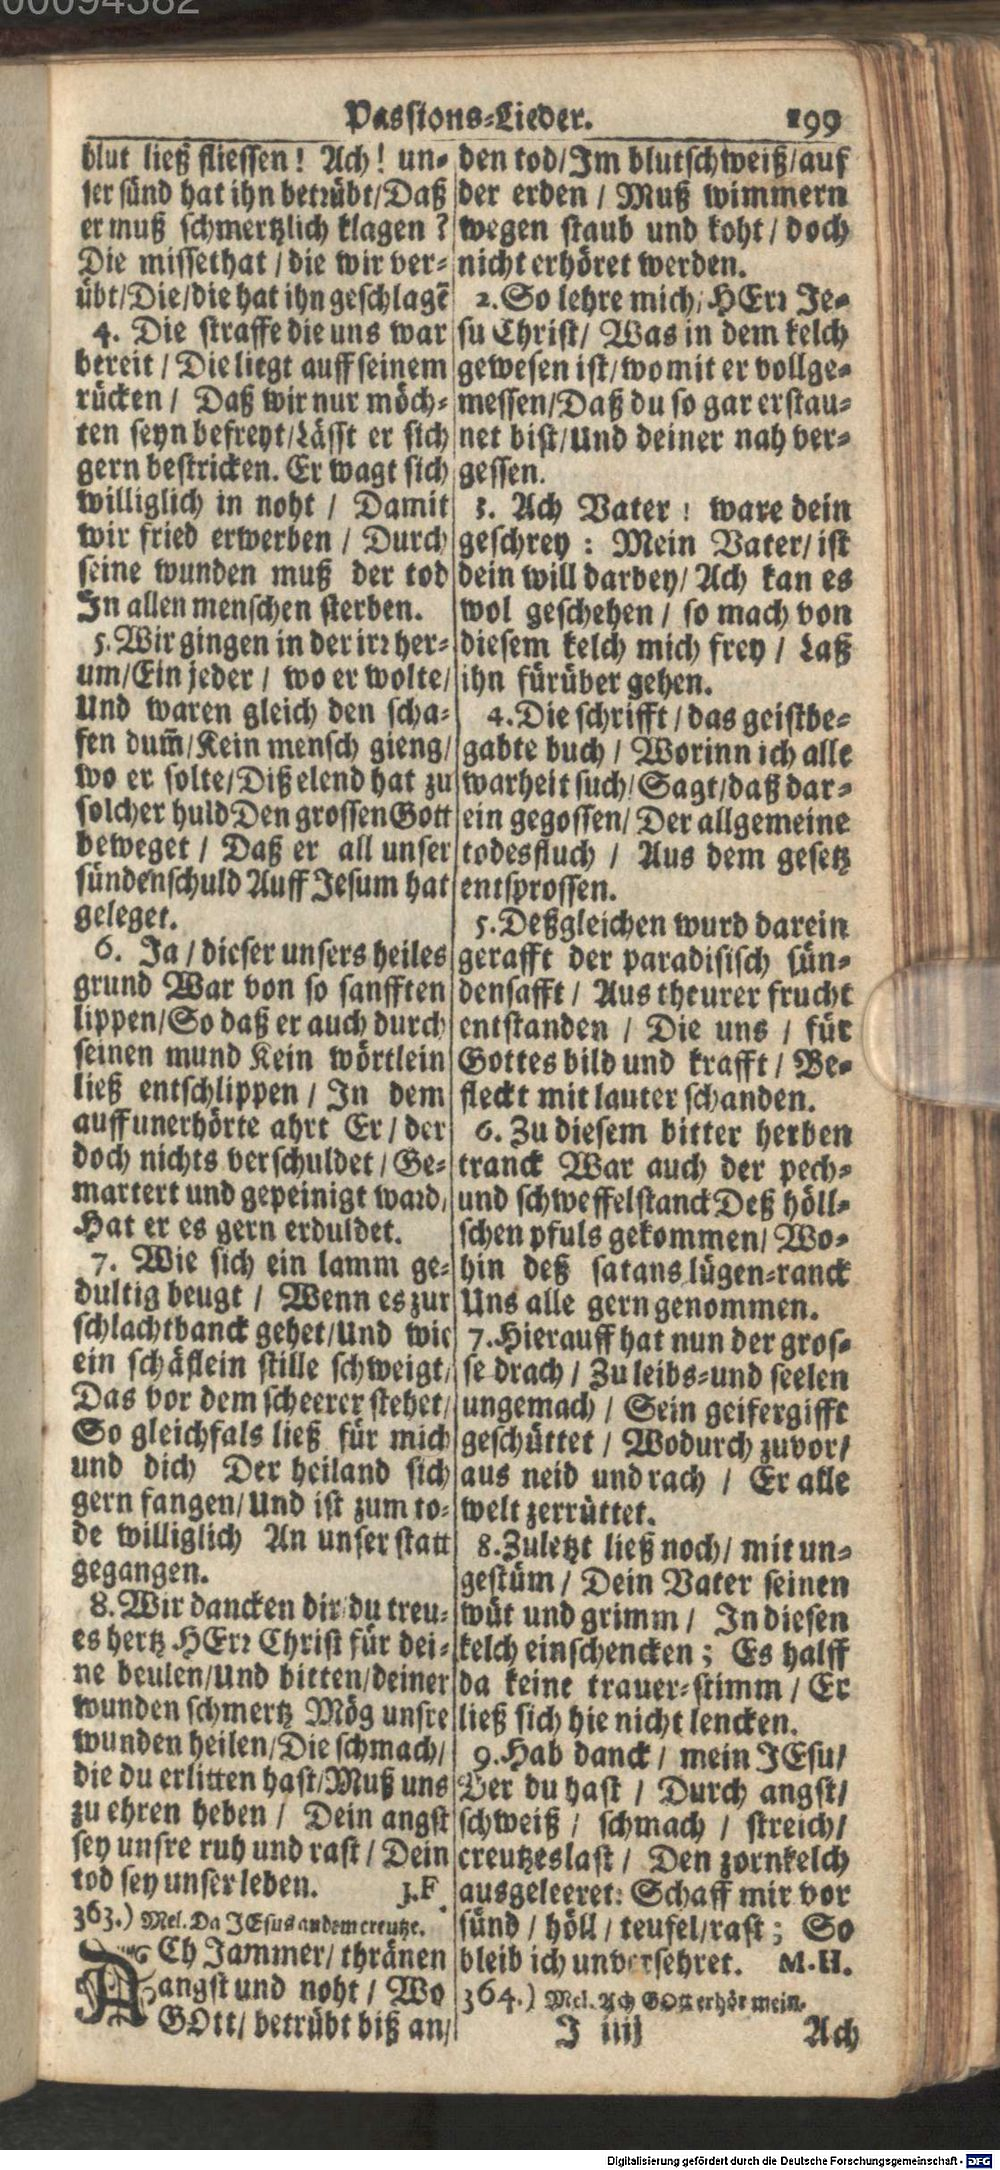 00094382
Passions-Lieder. 199
blut ließ fliessen! Ach! un-
ser sünd hat ihn betrübt/Daß
er muß schmertzlich klagen?
Die missethat / die wir ver-
übt/Die/die hat ihn geschlagē
4. Die straffe die uns war
bereit / Die liegt auff seinem
rücken / Daß wir nur möch-
ten seyn befreyt/Lässt er sich
gern bestricken. Er wagt sich
williglich in noht / Damit
wir fried erwerben / Durch
seine wunden muß der tod
In allen menschen sterben.
5. Wir gingen in der irr her-
um/Ein jeder / wo er wolte/
Und waren gleich den scha-
fen dum̄/Kein mensch gieng/
wo er solte/Diß elend hat zu
solcher huld Den grossen Gott
beweget / Daß er all unser
sündenschuld Auff Jesum hat
geleget.
6. Ja / dieser unsers heiles
grund War von so sanfften
lippen/So daß er auch durch
seinen mund Kein wörtlein
ließ entschlippen / In dem
auff unerhörte ahrt Er / der
doch nichts verschuldet / Ge-
martert und gepeinigt ward/
Hat er es gern erduldet.
7. Wie sich ein lamm ge-
dultig beugt / Wenn es zur
schlachtbanck gehet/Und wie
ein schäflein stille schweigt/
Das vor dem scheerer stehet/
So gleichfals ließ für mich
und dich Der heiland sich
gern fangen/Und ist zum to-
de williglich An unser statt
gegangen.
8. Wir dancken dir du treu-
es hertz HErr Christ für dei-
ne beulen/Und bitten/deiner
wunden schmertz Mög unsre
wunden heilen/Die schmach/
die du erlitten hast/Muß uns
zu ehren heben / Dein angst
sey unsre ruh und rast / Dein
tod sey unser leben. J.F.
363.) Mel. Da JEsus an dem creutze.
ACh Jammer/ thränen
angst und noht / Wo
GOtt/ betrübt biß an/
den tod/Im blutschweiß/auf
der erden / Muß wimmern
wegen staub und koht / doch
nicht erhöret werden.
2. So lehre mich/ HErr Je-
su Christ/ Was in dem kelch
gewesen ist/womit er vollge-
messen/Daß du so gar erstau-
net bist/Und deiner nah ver-
gessen.
3. Ach Vater! ware dein
geschrey : Mein Vater/ ist
dein will darbey/ Ach kan es
wol geschehen / so mach von
diesem kelch mich frey / Laß
ihn fürüber gehen.
4. Die schrifft / das geistbe-
gabte buch / Worinn ich alle
warheit such/Sagt/daß dar-
ein gegossen/ Der allgemeine
todesfluch / Aus dem gesetz
entsprossen.
5. Deßgleichen wurd darein
gerafft der paradisisch sün-
densafft / Aus theurer frucht
entstanden / Die uns / für
Gottes bild und krafft / Be-
fleckt mit lauter schanden.
6. Zu diesem bitter herben
tranck War auch der pech-
und schweffelstanck Deß höll-
schen pfuls gekommen/ Wo-
hin deß satans lügen-ranck
Uns alle gern genommen.
7. Hierauff hat nun der gros-
se drach / Zu leibs-und seelen
ungemach / Sein geifergifft
geschüttet / Wodurch zuvor/
aus neid und rach / Er alle
welt zerrüttet.
8. Zuletzt ließ noch/ mit un-
gestüm / Dein Vater seinen
wüt und grimm / In diesen
kelch einschencken ; Es halff
da keine trauer-stimm / Er
ließ sich hie nicht lencken.
9. Hab danck / mein JEsu/
Der du hast / Durch angst/
schweiß / schmach / streich/
creutzeslast / Den zornkelch
ausgeleeret: Schaff mir vor
sünd / höll / teufel/rast ; So
bleib ich unversehret. M.H.
364.) Mel. Ach GOtt erhör mein.
J iiij Ach
Digitalisierung gefördert durch die Deutsche Forschungsgemeinschaft - DFG